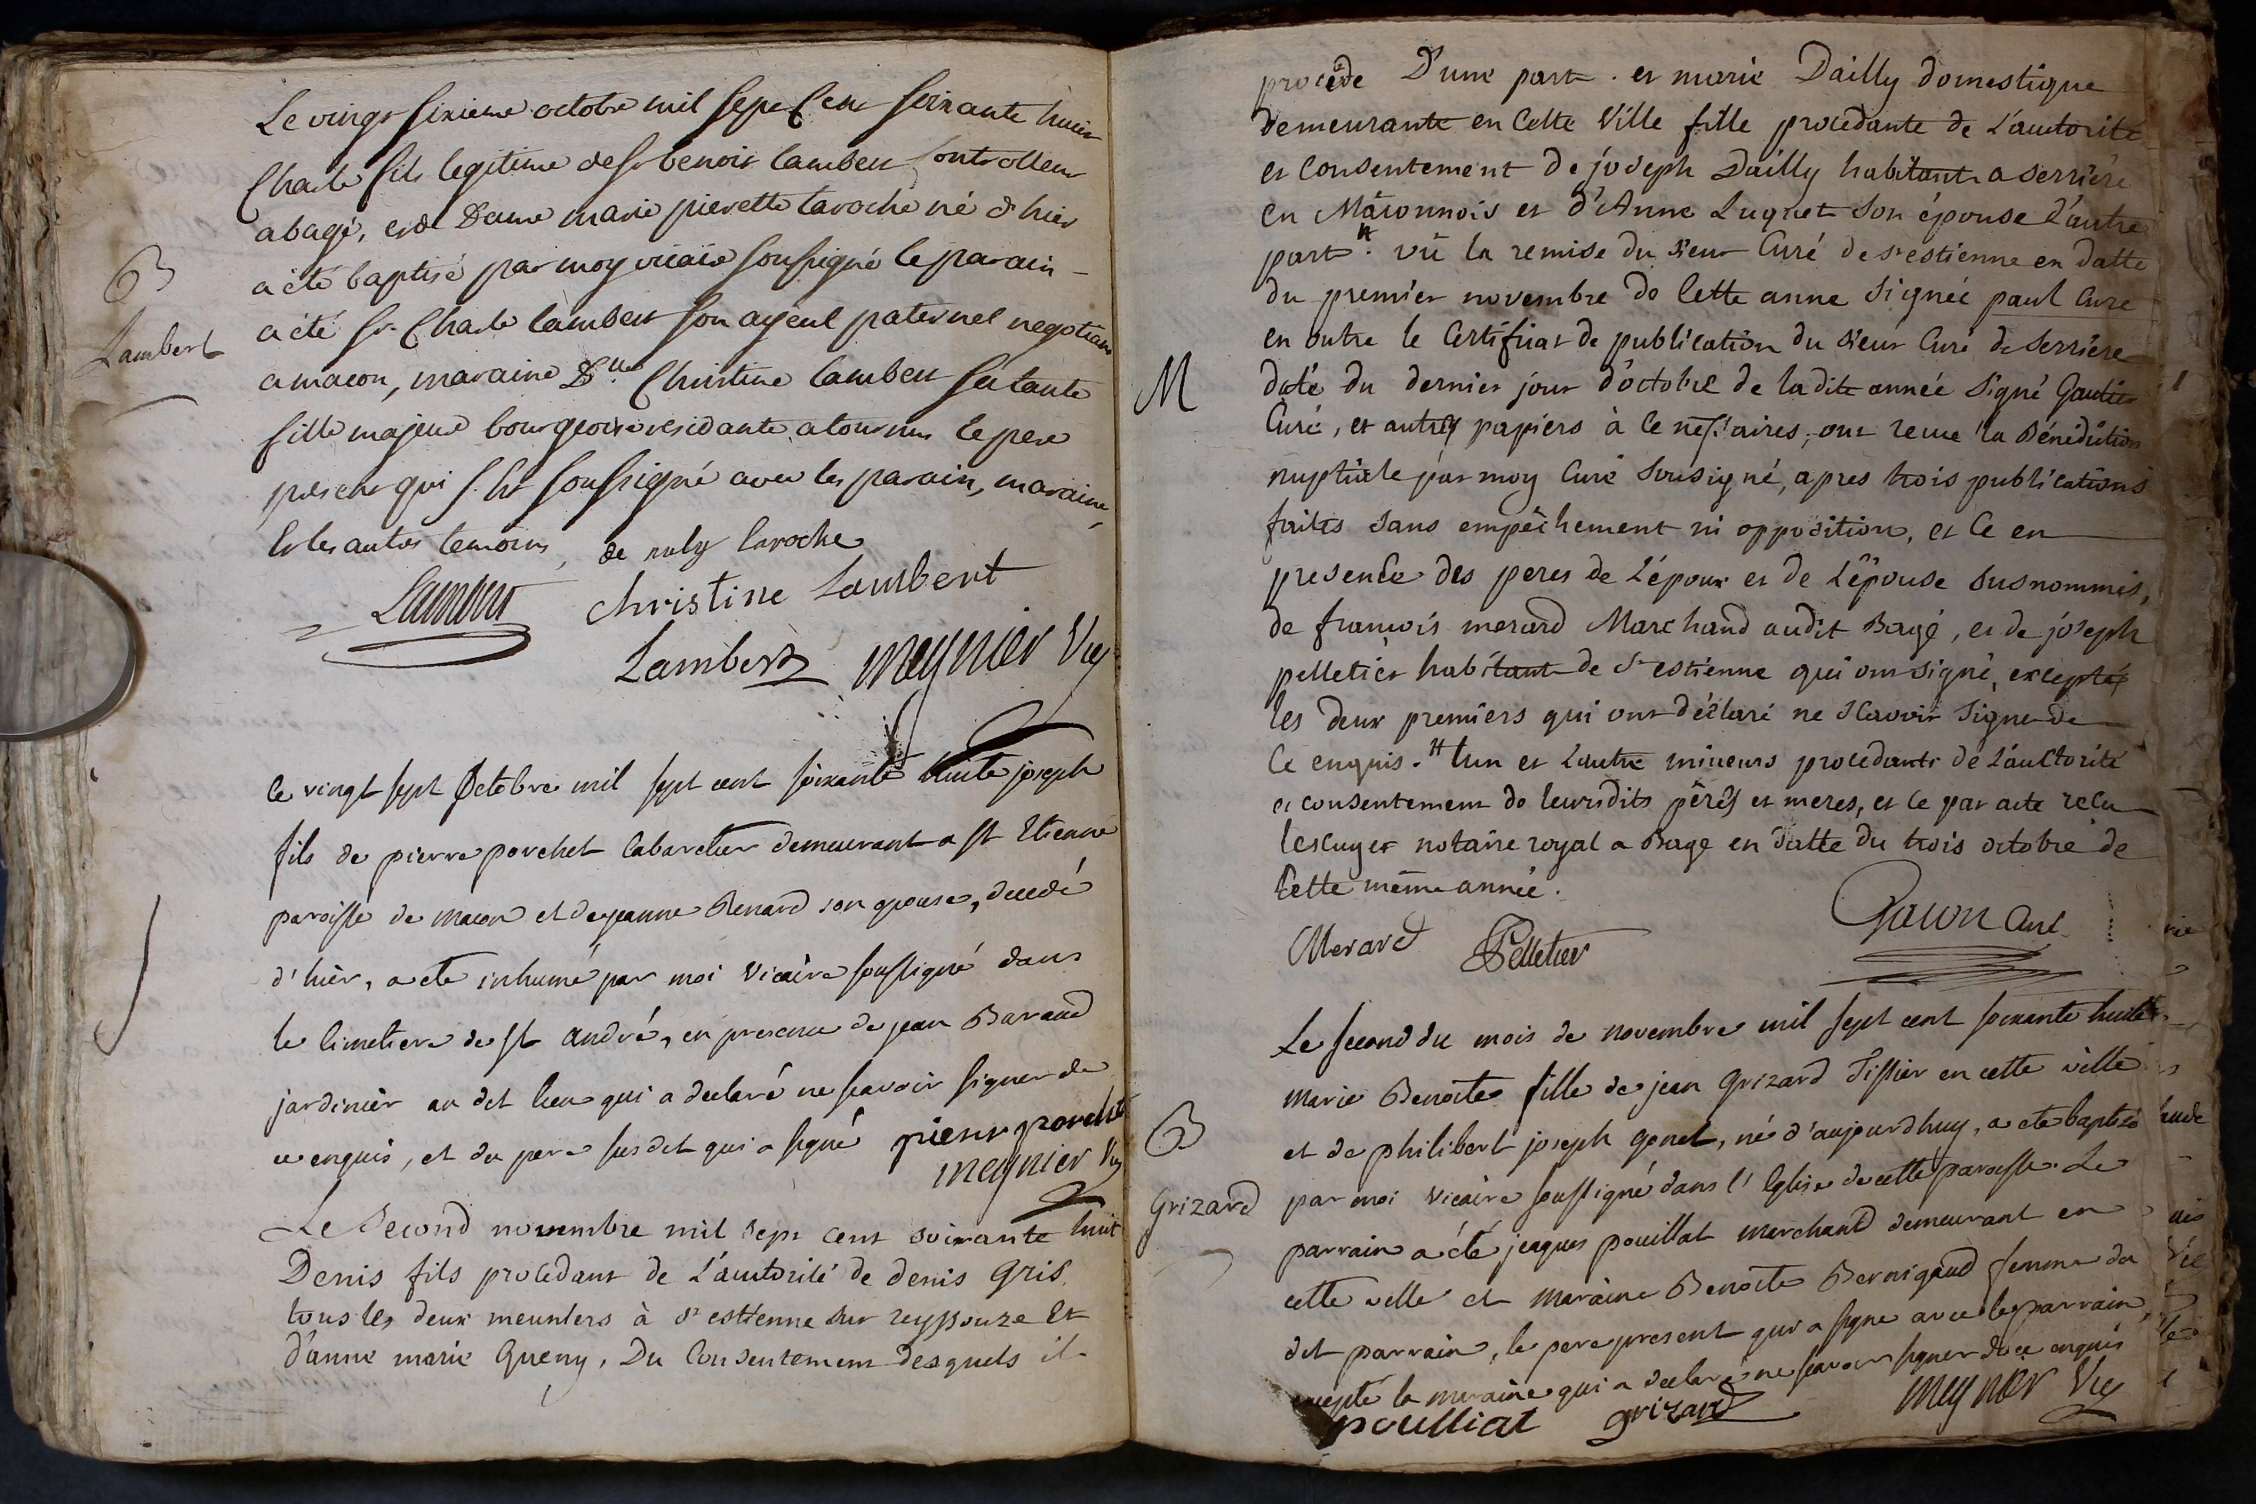 Le vingt sixieme octobre mil sept Cent soixante huit
Charle fils legitime de sr benoit lambert Controlleur
a bagé, et de Dame marie pierrette laroche né d'hier
a été baptisé par moy vicaire soussigné le parain
B
a été sr Charle lambert son ayeul paternel negotiant
Lambert
a macon, maraine Dlle Christine lambert sa tante
fille majeure bourgeoise residante a tournus le pere
present qui s'est soussigné avec les parain, maraine,
et les autres temoins, de ruby laroche
Lambert Christine Lambert
Lambert meynier Vic
Le vingt sept Octobre mil sept cent soixante huite joseph
fils de pierre porchet Cabaretier demeurant a st Etienne
paroisse de macon et de jeanne Renard son epouse, decedé
d'hier, a eté inhumé par moi Vicaire soussigné dans
le Cimetiere de st andré, en presence de jean Baraud
jardinier au dit lieu qui a declaré ne scavoir signer de
ce enquis, et du pere susdit qui a signé pierre porchet
meynier Vic
Le Second novembre mil sept cent soixante huit
Denis fils procedant de L'autorité de denis gris
tous les deux meuniers à st estienne sur reyssouze Et
d'anne marie Queny, Du Consentement desquels il
procede D'une part. et marie Dailly domestique
demeurante en Cette Ville fille procedante de L'autorité
et Consentement de joseph Dailly habitant a serriere
en Mâconnois et d'Anne Luquet son épouse d'autre
part # vû la remise du sieur Curé de st estienne en datte
du premier novembre de Cette anne signée paul Curé
en outre le Certificat de publication du sieur Curé de serriere
M
daté du dernier jour d'octobre de la dite année signé Gautier
Curé, et autres papiers à Ce nessaires, ont reçue la Bénédiction
nuptiale par moy Curé sousigné, apres trois publications
faites sans empêchement ni opposition, et Ce en
presence des peres de L'époux et de L'épouse susnommés,
de francois merard Marchand audit Bagé, et de joseph
pelletier habitant de st estienne qui ont signé, exceptés
les deux premiers qui ont déclaré ne sçavoir signer de
Ce enquis. # l'un et l'autre mineurs procedants de L'auctorité
et consentement de leursdits pêrês et meres, et Ce par acte recu
lescuyer notaire royal a Bagé en datte du trois octobre de
Cette même année.
Merard Pelletier Gacon Curé
Le second du mois de novembre mil sept cent soixante huite
marie Benoite fille de jean grizard Tissier en cette ville
B
et de philibert joseph gonet, né d'aujourdhuy, a eté baptisé
Grizard
par moi Vicaire soussigné dans l'Eglise de cette paroisse. Le
parrain a été jacques pouillat marchand demeurant en
cette ville et maraine Benoite Bernigaud femme du
dit parrain, le pere present qui a signé avec le parrain,
excepté la maraine qui a declaré ne scavoir signer de ce enquis
poulliat grizard meynier Vic